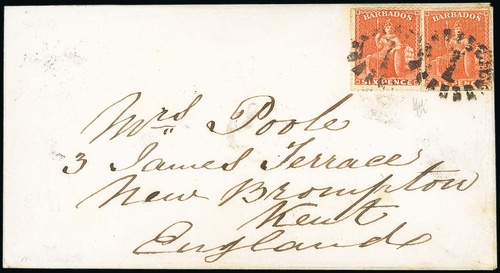 BARBADOS BARBADOS
SIX PENCE
Mrs Poole
3 James Terrace
New Brompton
Kent
England